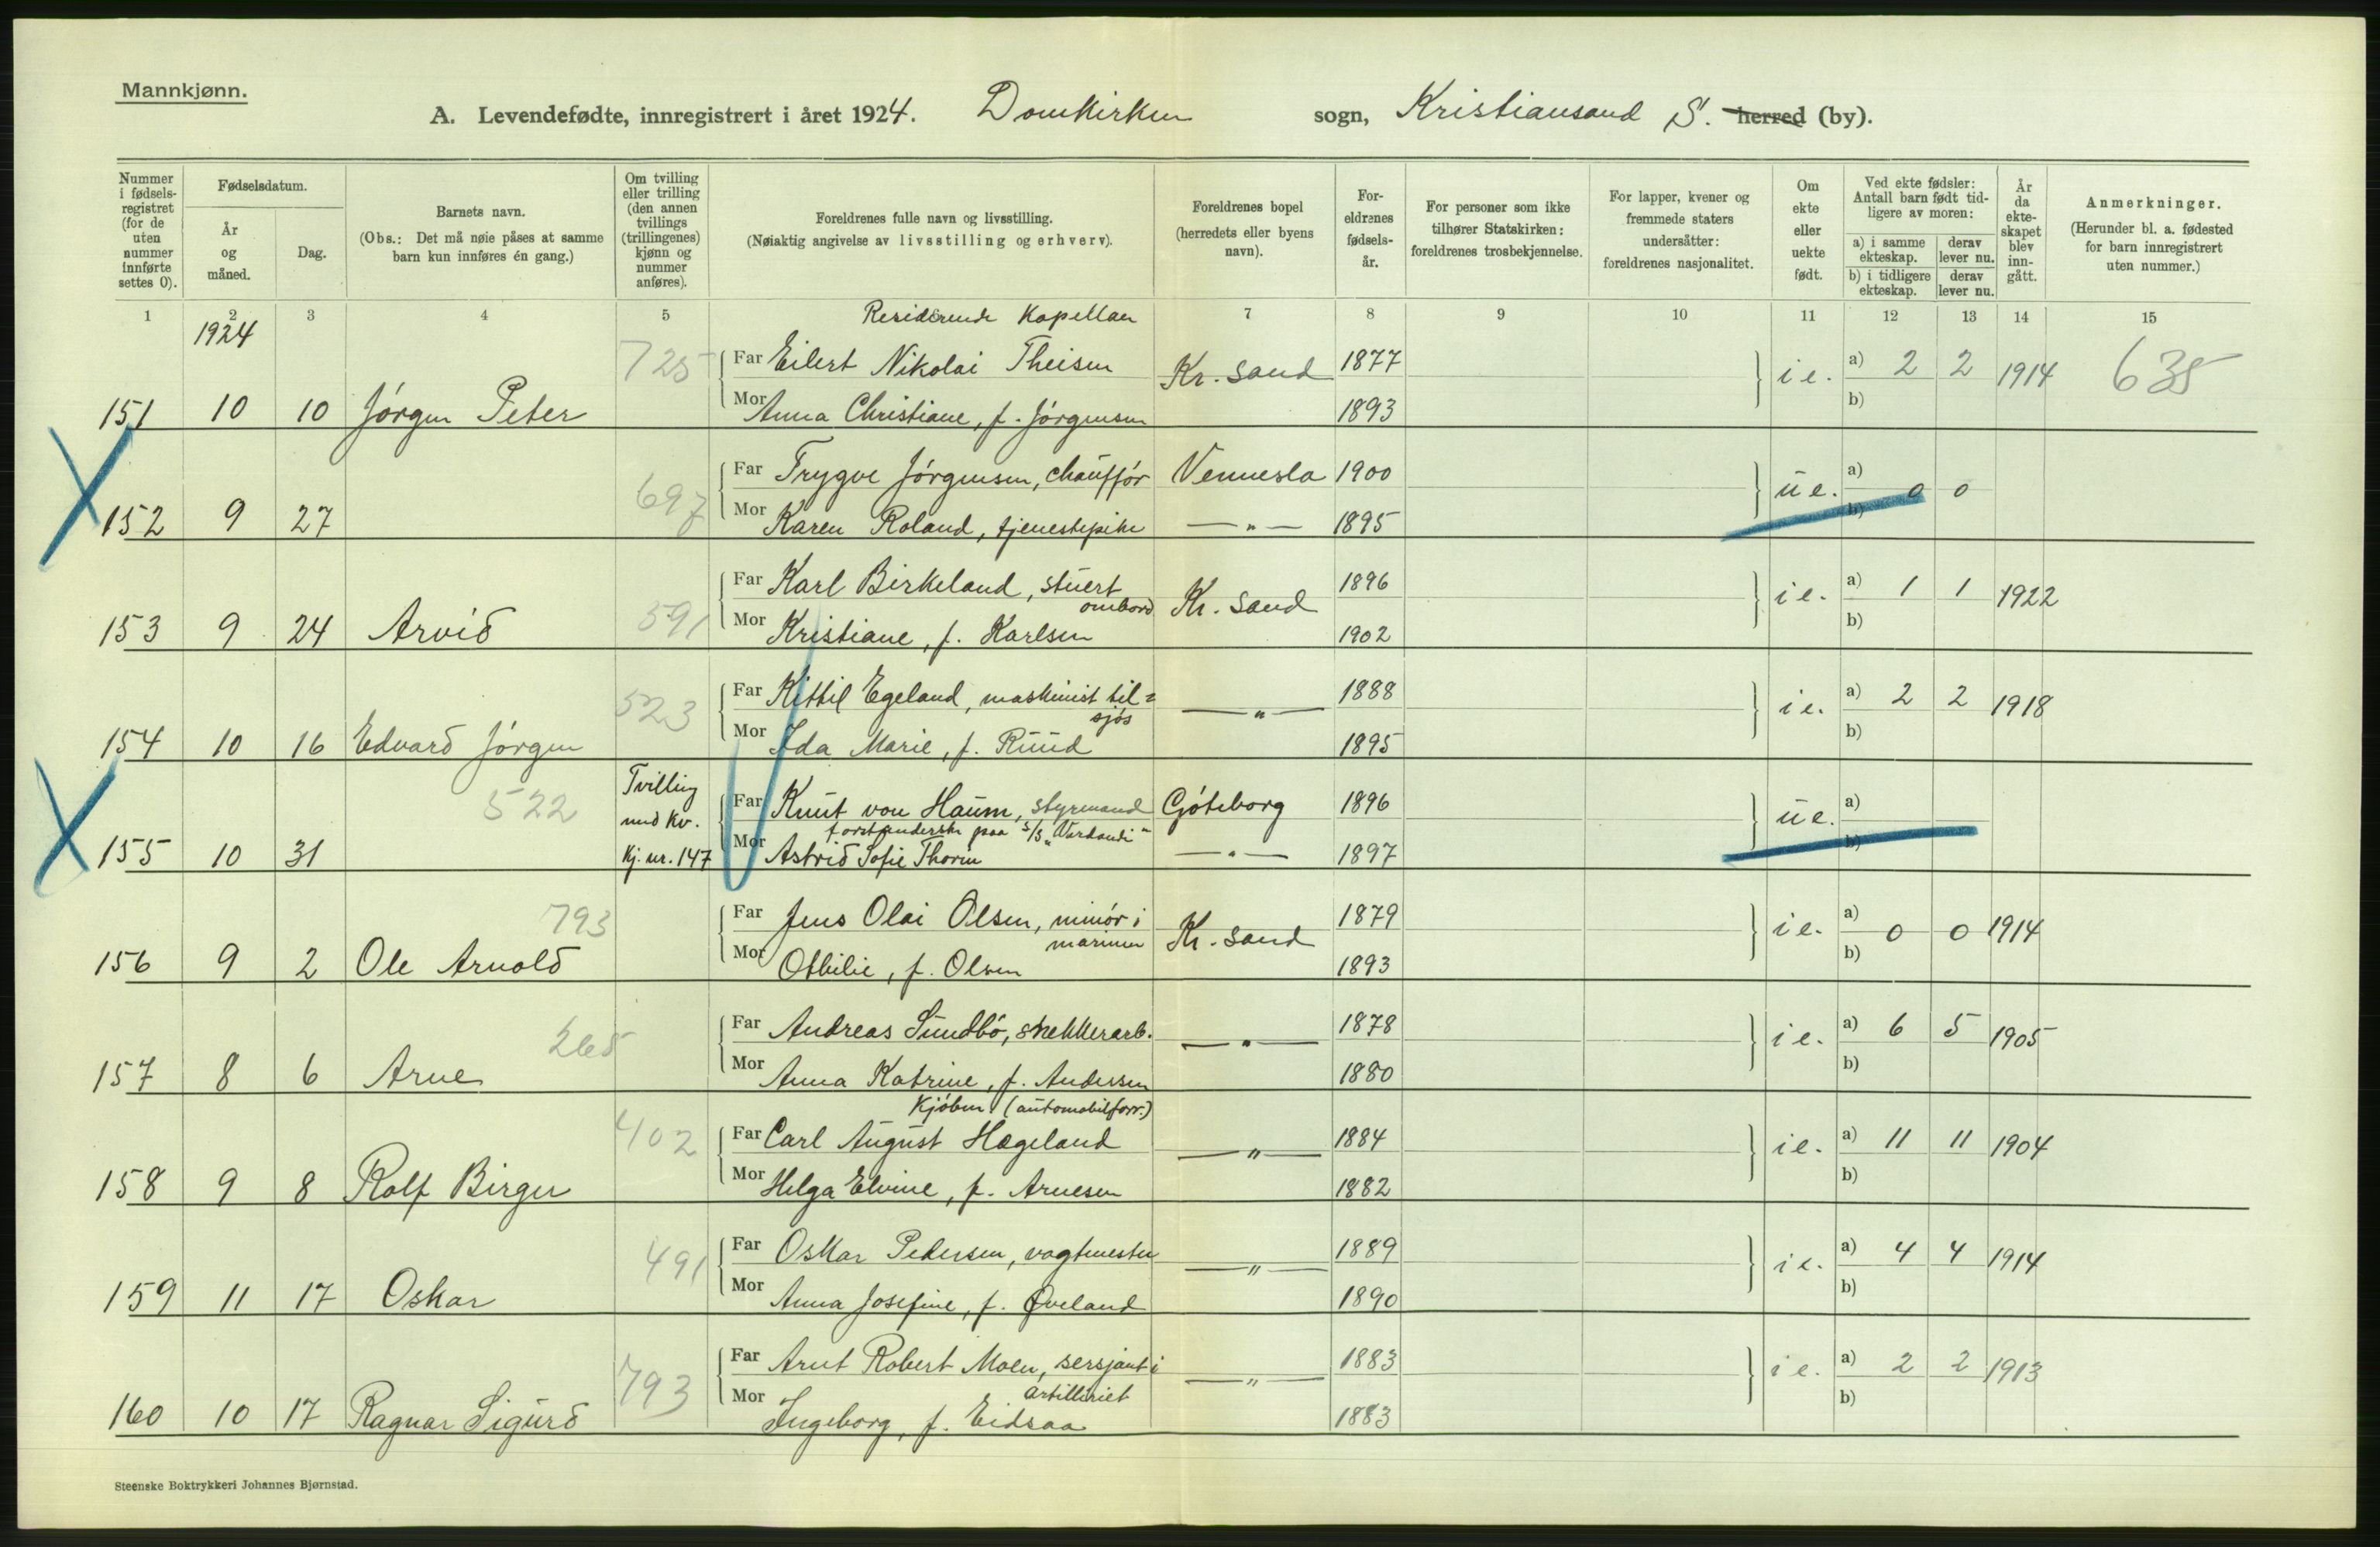 Mannkjønn.
A. Levendefødte, innregistrert i året 1924. Domkirken sogn, Kristiansand S. herred (by).
Nummer i fødselsregistret (for de uten nummer innførte settes 0).
Fødselsdatum.
År og måned.
Dag.
Barnets navn.
(Obs.: Det må nøie påses at samme barn kun innføres én gang.)
Om tvilling eller trilling (den annen tvillings (trillingenes) kjønn og nummer anføres).
Foreldrenes fulle navn og livsstilling.
(Nøiaktig angivelse av livsstilling og erhverv).
Foreldrenes bopel (herredets eller byens navn).
Foreldrenes fødselsår.
For personer som ikke tilhører Statskirken: foreldrenes trosbekjennelse.
For lapper, kvener og fremmede staters undersåtter: foreldrenes nasjonalitet.
Om ekte eller uekte født.
Ved ekte fødsler: Antall barn født tidligere av moren:
a) i samme ekteskap. derav lever nu.
b) i tidligere ekteskap. derav lever nu.
År da ekteskapet blev inngått.
Anmerkninger.
(Herunder bl. a. fødested for barn innregistrert uten nummer.)
1 2 3 4 5 6 7 8 9 10 11 12 13 14 15
1924
Residerende Kapellan
725 Far Eilert Nikolai Theisen Kr. sand 1877 i e. a) 2 2 1914 635
151 10 10 Jörgen Peter Mor Anna Christiane, f. Jörgensen 1893 b)
697 Far Trygve Jörgensen, chaufför Vennesla 1900 ue. a) 0 0
152 9 27 Mor Karen Roland, tjenestepike — " — 1895 b)
591 Far Karl Birkeland, stuert ombord Kr. sand 1896 i e. a) 1 1 1922
153 9 24 Arvid Mor Kristiane, f. Karlsen 1902 b)
523 Far Kittil Egeland, maskinist til= sjós — " — 1888 i e. a) 2 2 1918
154 10 16 Edvard Jörgen Mor Ida Marie, f. Ruud 1895 b)
522 Tvilling med kv. Far Knut von Haum, styrmand Göteborg 1896 ue. a)
forstanderske paa s/s "Vardandi"
155 10 31 Kj. nr. 147 Mor Astrid Sofie Thorin — " — 1897 b)
793 Far Jens Olai Olsen, minör i marinen Kr. sand 1879 i e. a) 0 0 1914
156 9 2 Ole Arnold Mor Othilie, f. Olsen 1893 b)
265 Far Andreas Sundbö, snekkerarb. — " — 1878 i e. a) 6 5 1905
157 8 6 Arne Mor Anna Katrine, f. Andersen 1880 b)
Kjöbm. (automobilforr.)
402 Far Carl August Hægeland — " — 1884 i e. a) 11 11 1904
158 9 8 Rolf Birger Mor Helga Elvine, f. Arnesen 1882 b)
491 Far Oskar Pedersen, vagtmester — " — 1889 i e. a) 4 4 1914
159 11 17 Oskar Mor Anna Josefine, f. Øveland 1890 b)
793 Far Arnt Robert Moen, sersjant i artilleriet — " — 1883 i e. a) 2 2 1913
160 10 17 Ragnar Sigurd Mor Ingeborg, f. Eidsaa 1883 b)
Steenske Boktrykkeri Johannes Bjørnstad.